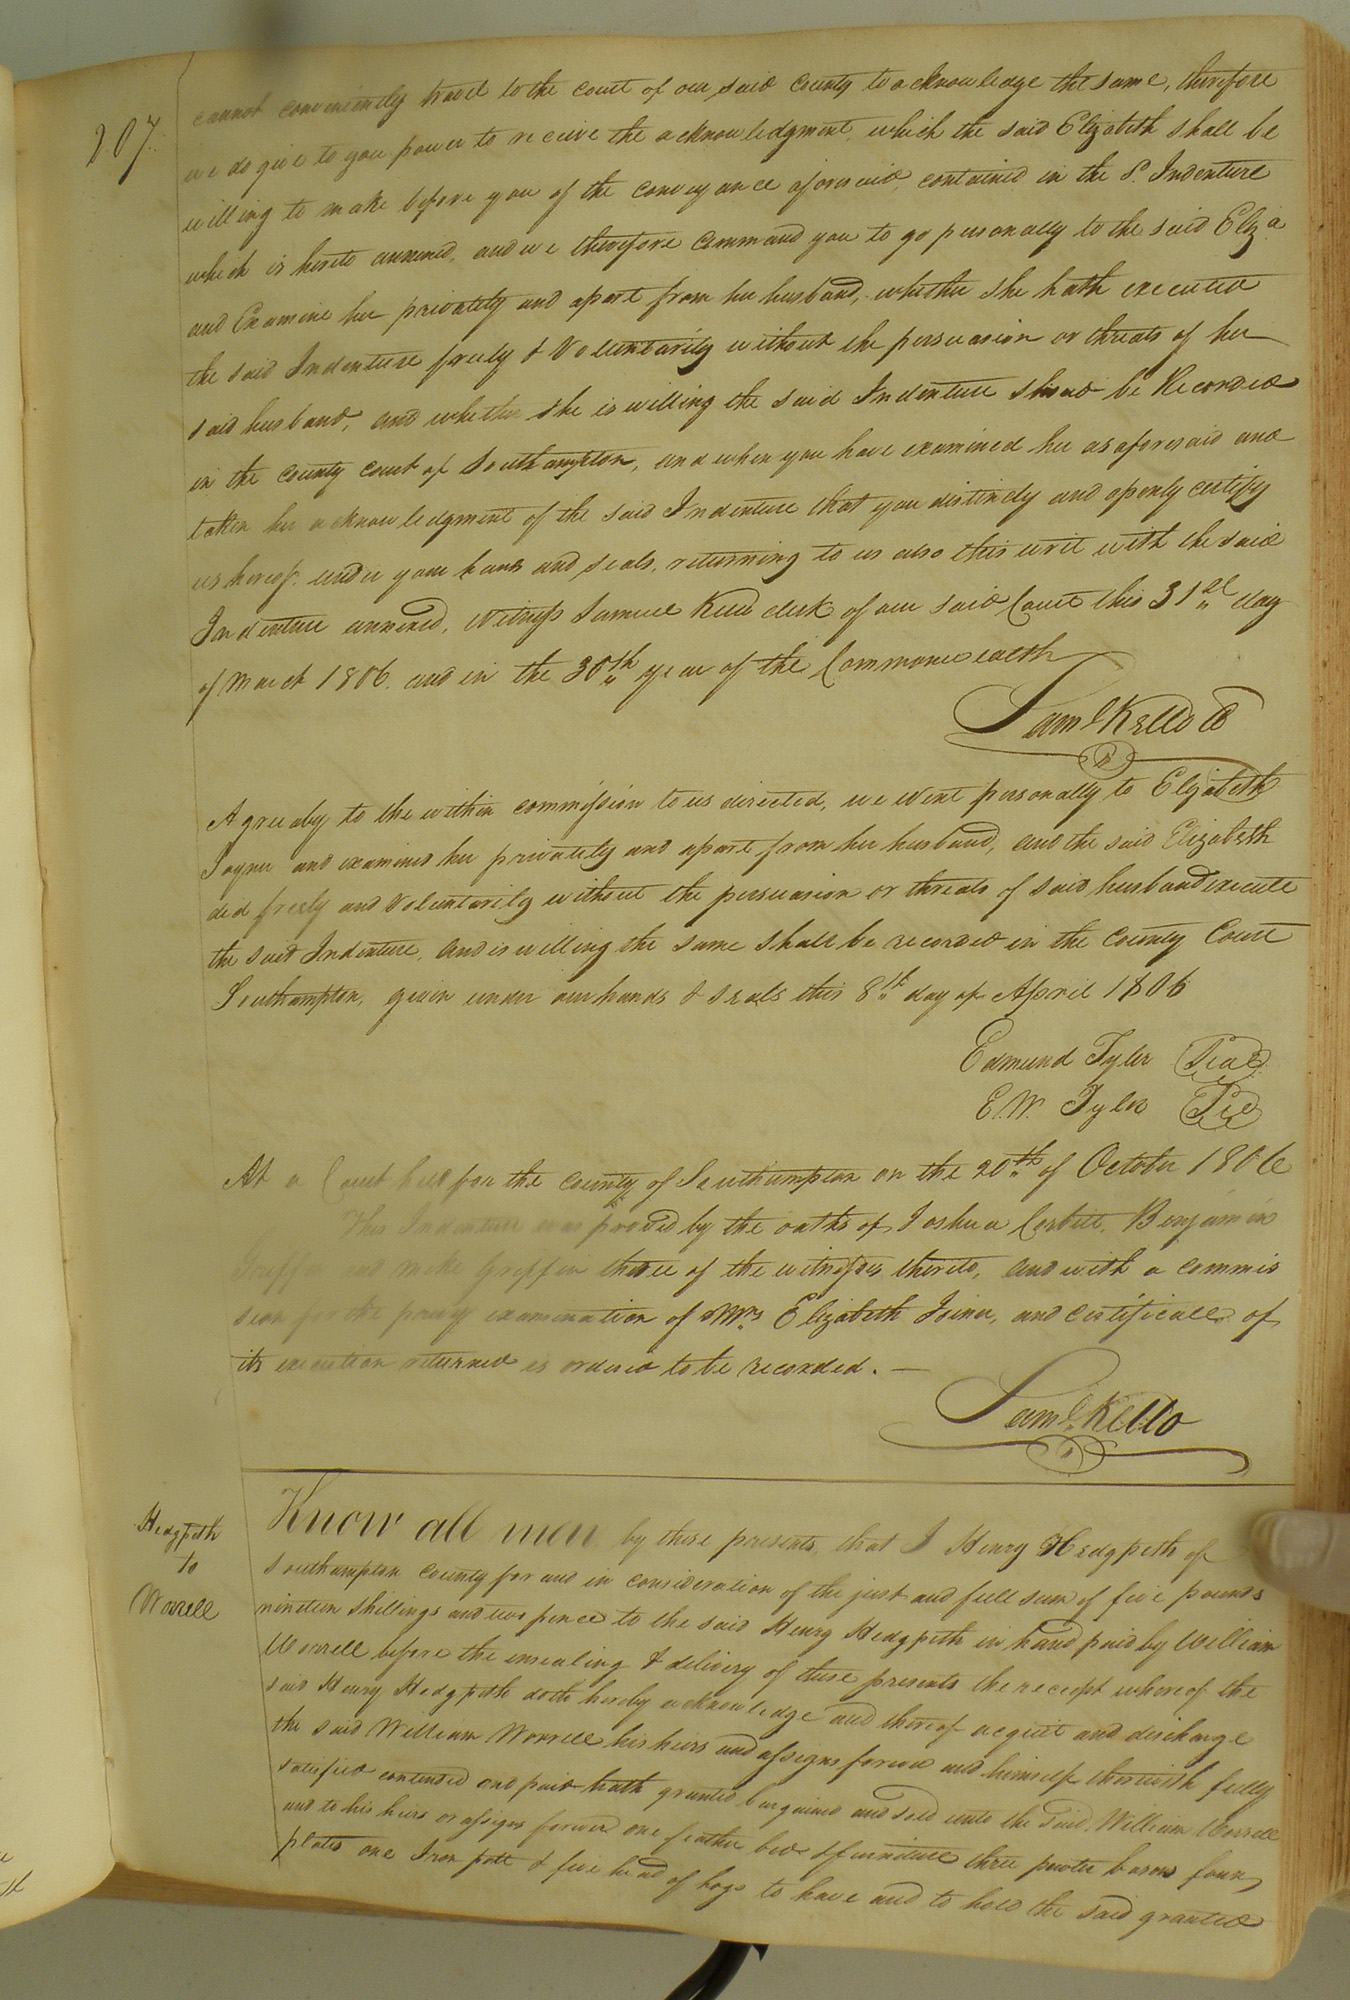 207.
cannot conveniently travel to the court of our said County to acknowledge the same, therefore
we do give to you power to receive the acknowledgment, which the said Elizabeth shall be
willing to make before you of the conveyance aforesaid, contained in the Sd. Indenture
which is hereto annexed, and we therefore Command you to go personally to the said Eliza
and Examine her privately and apart from her husband, whether she hath executed
the said Indenture freely & Voluntarily without the persuasion or threats of her
said husband, and whether she is willing the said Indenture should be Recorded
in the county court of Southampton, and when you have examined her as aforesaid and
taken her acknowledgment of the said Indenture that you distinctly and openly certify
us hereof. under your hands and seals, returning to us also this writ with the said
Indenture annexed. Witness Samuel Kello clerk of our said Court this 31st day
of March 1806. and in the 30th year of the Commonwealth
Saml Kello Cl
Agreeaby to the within commission to us directed, we went personally to Elizabeth
Joyner and examined her privately and apart from her husband, and the said Elizabeth
did freely and Voluntarily without the persuasion or threats of said husband execute
the said Indenture, and is willing the same shall be recorded in the County Court
Southampton, given under our hands & seals this 8th day of April 1806
Edmund Tyler Seal
E. W. Tyler Seal
At a Court held for the county of Southampton on the 20th of October 1806
This Indenture was proved by the oaths of Joshua Corbitt, Benjamin
Griffin and Griffin three of the witnesses thereto, and with a commis
sion for the privy examination of Mrs Elizabeth Joiner, and certificate of
its execution returned is ordered to be recorded. —
Saml Kello
Hedgpeth
to
Worrell
Know all men by these presents, that I Henry Hedgpeth of
Southampton County for and in consideration of the just and full sum of five pounds
nineteen Shillings and two pence to the said Henry Hedgpeth in hand paid by William
Worrell before the ensealing & delivery of these presents the receipt whereof the
said Henry Hedgpeth doth hereby acknowledge and thereof acquit and discharge
the said William Worrell his heirs and assigns forever and himself therewith fully
satisfied contented and paid hath granted bargained and sold unto the said William Worrell
and to his heirs or assigns forever one feather bed & furniture three pewter basons four
plates one Iron pott & five head of hogs to have and to hold the said granted